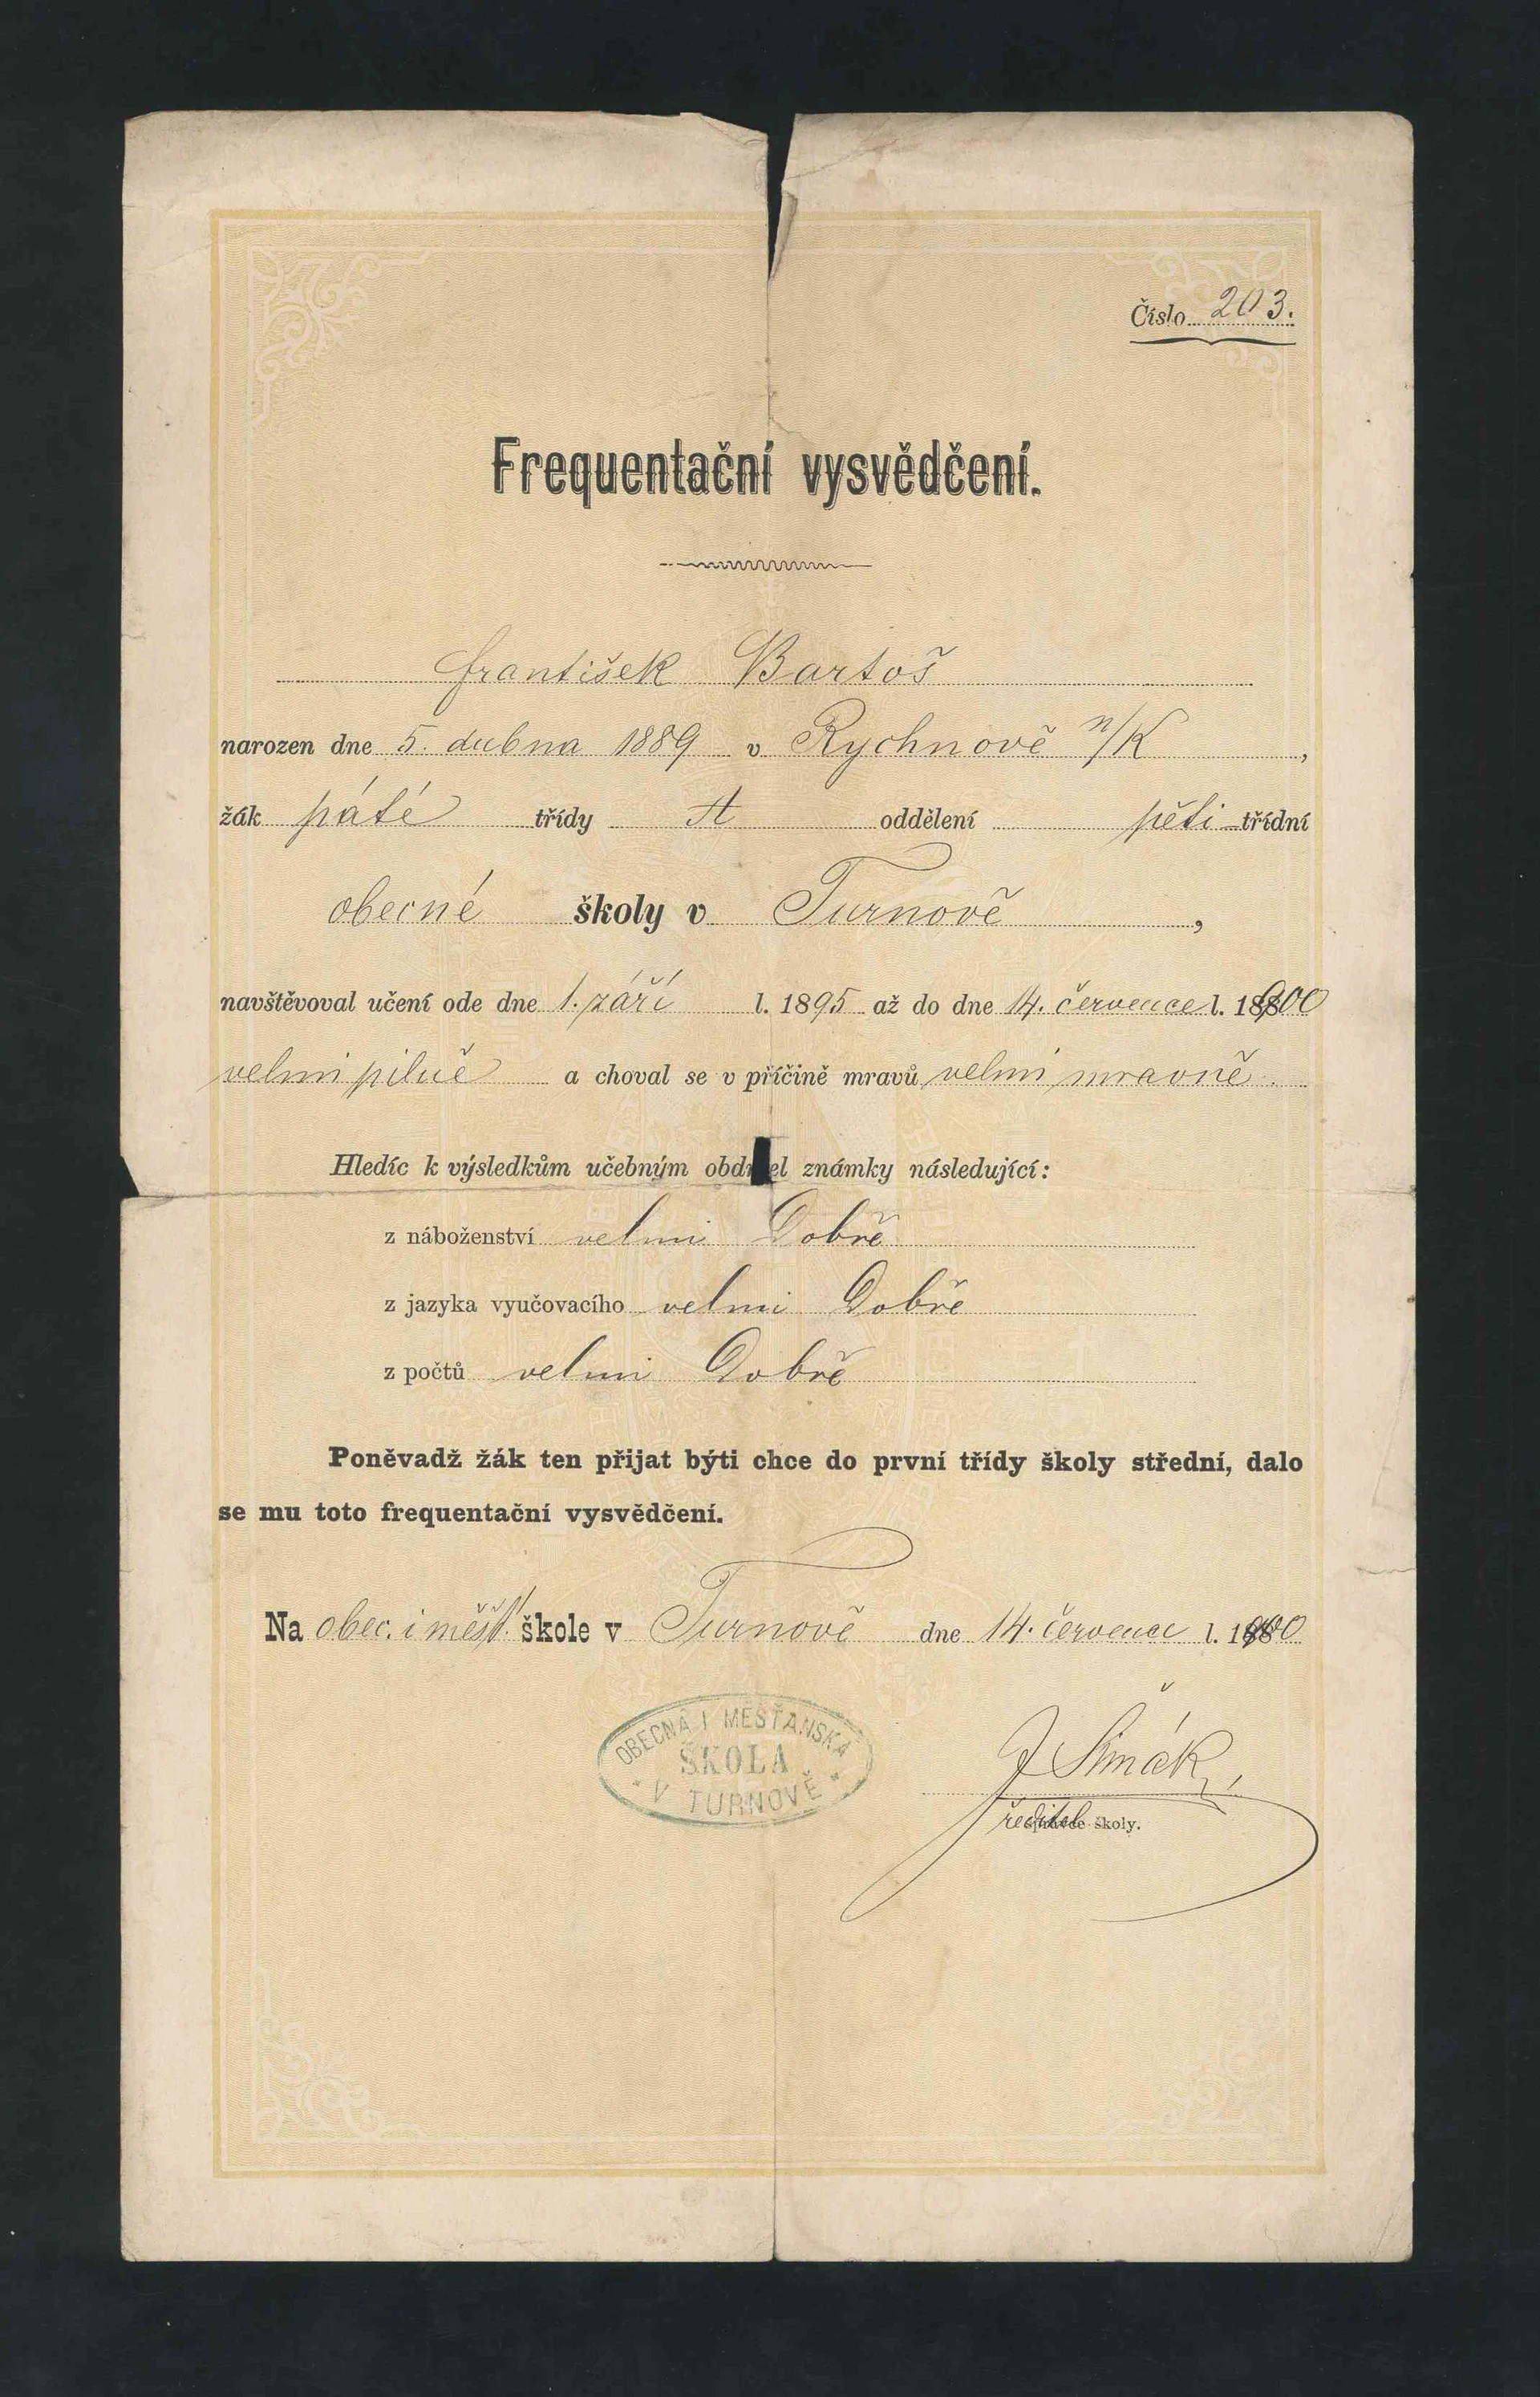 Číslo 203.
Frequentační vysvědčení.
František Bartoš
narozen dne 5. dubna 1889 v Rychnově n/K,
žák páté třídy A oddělení pěti-třídní
obecné školy v Turnově,
navštěvoval učení ode dne 1. září l. 1895 až do dne 14. července l. 1900
velmi pilně a choval se v příčině mravů velmi mravně.
Hledíc k výsledkům učebným obdržel známky následující:
z náboženství velmi Dobře
z jazyka vyučovacího velmi Dobře
z počtů velmi Dobře
Poněvadž žák ten přijat býti chce do první třídy školy střední, dalo
se mu toto frequentační vysvědčení.
Na obec. i měšť. škole v Turnově dne 14. července l. 1900
OBECNÁ I MĚŠŤANSKÁ
ŠKOLA
* V TURNOVĚ *
J Šimák
ředitel školy.